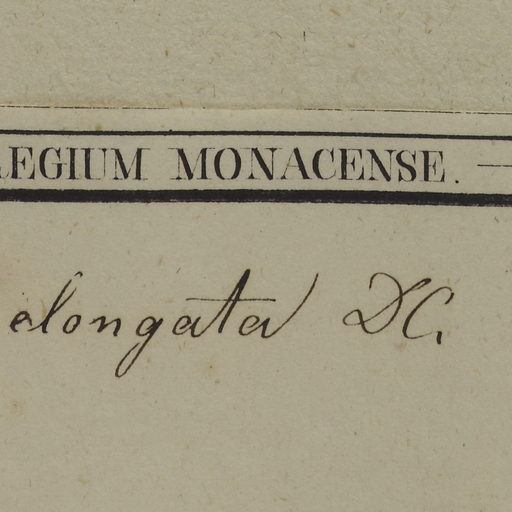 REGIUM MONACENSE.
elongata DC.